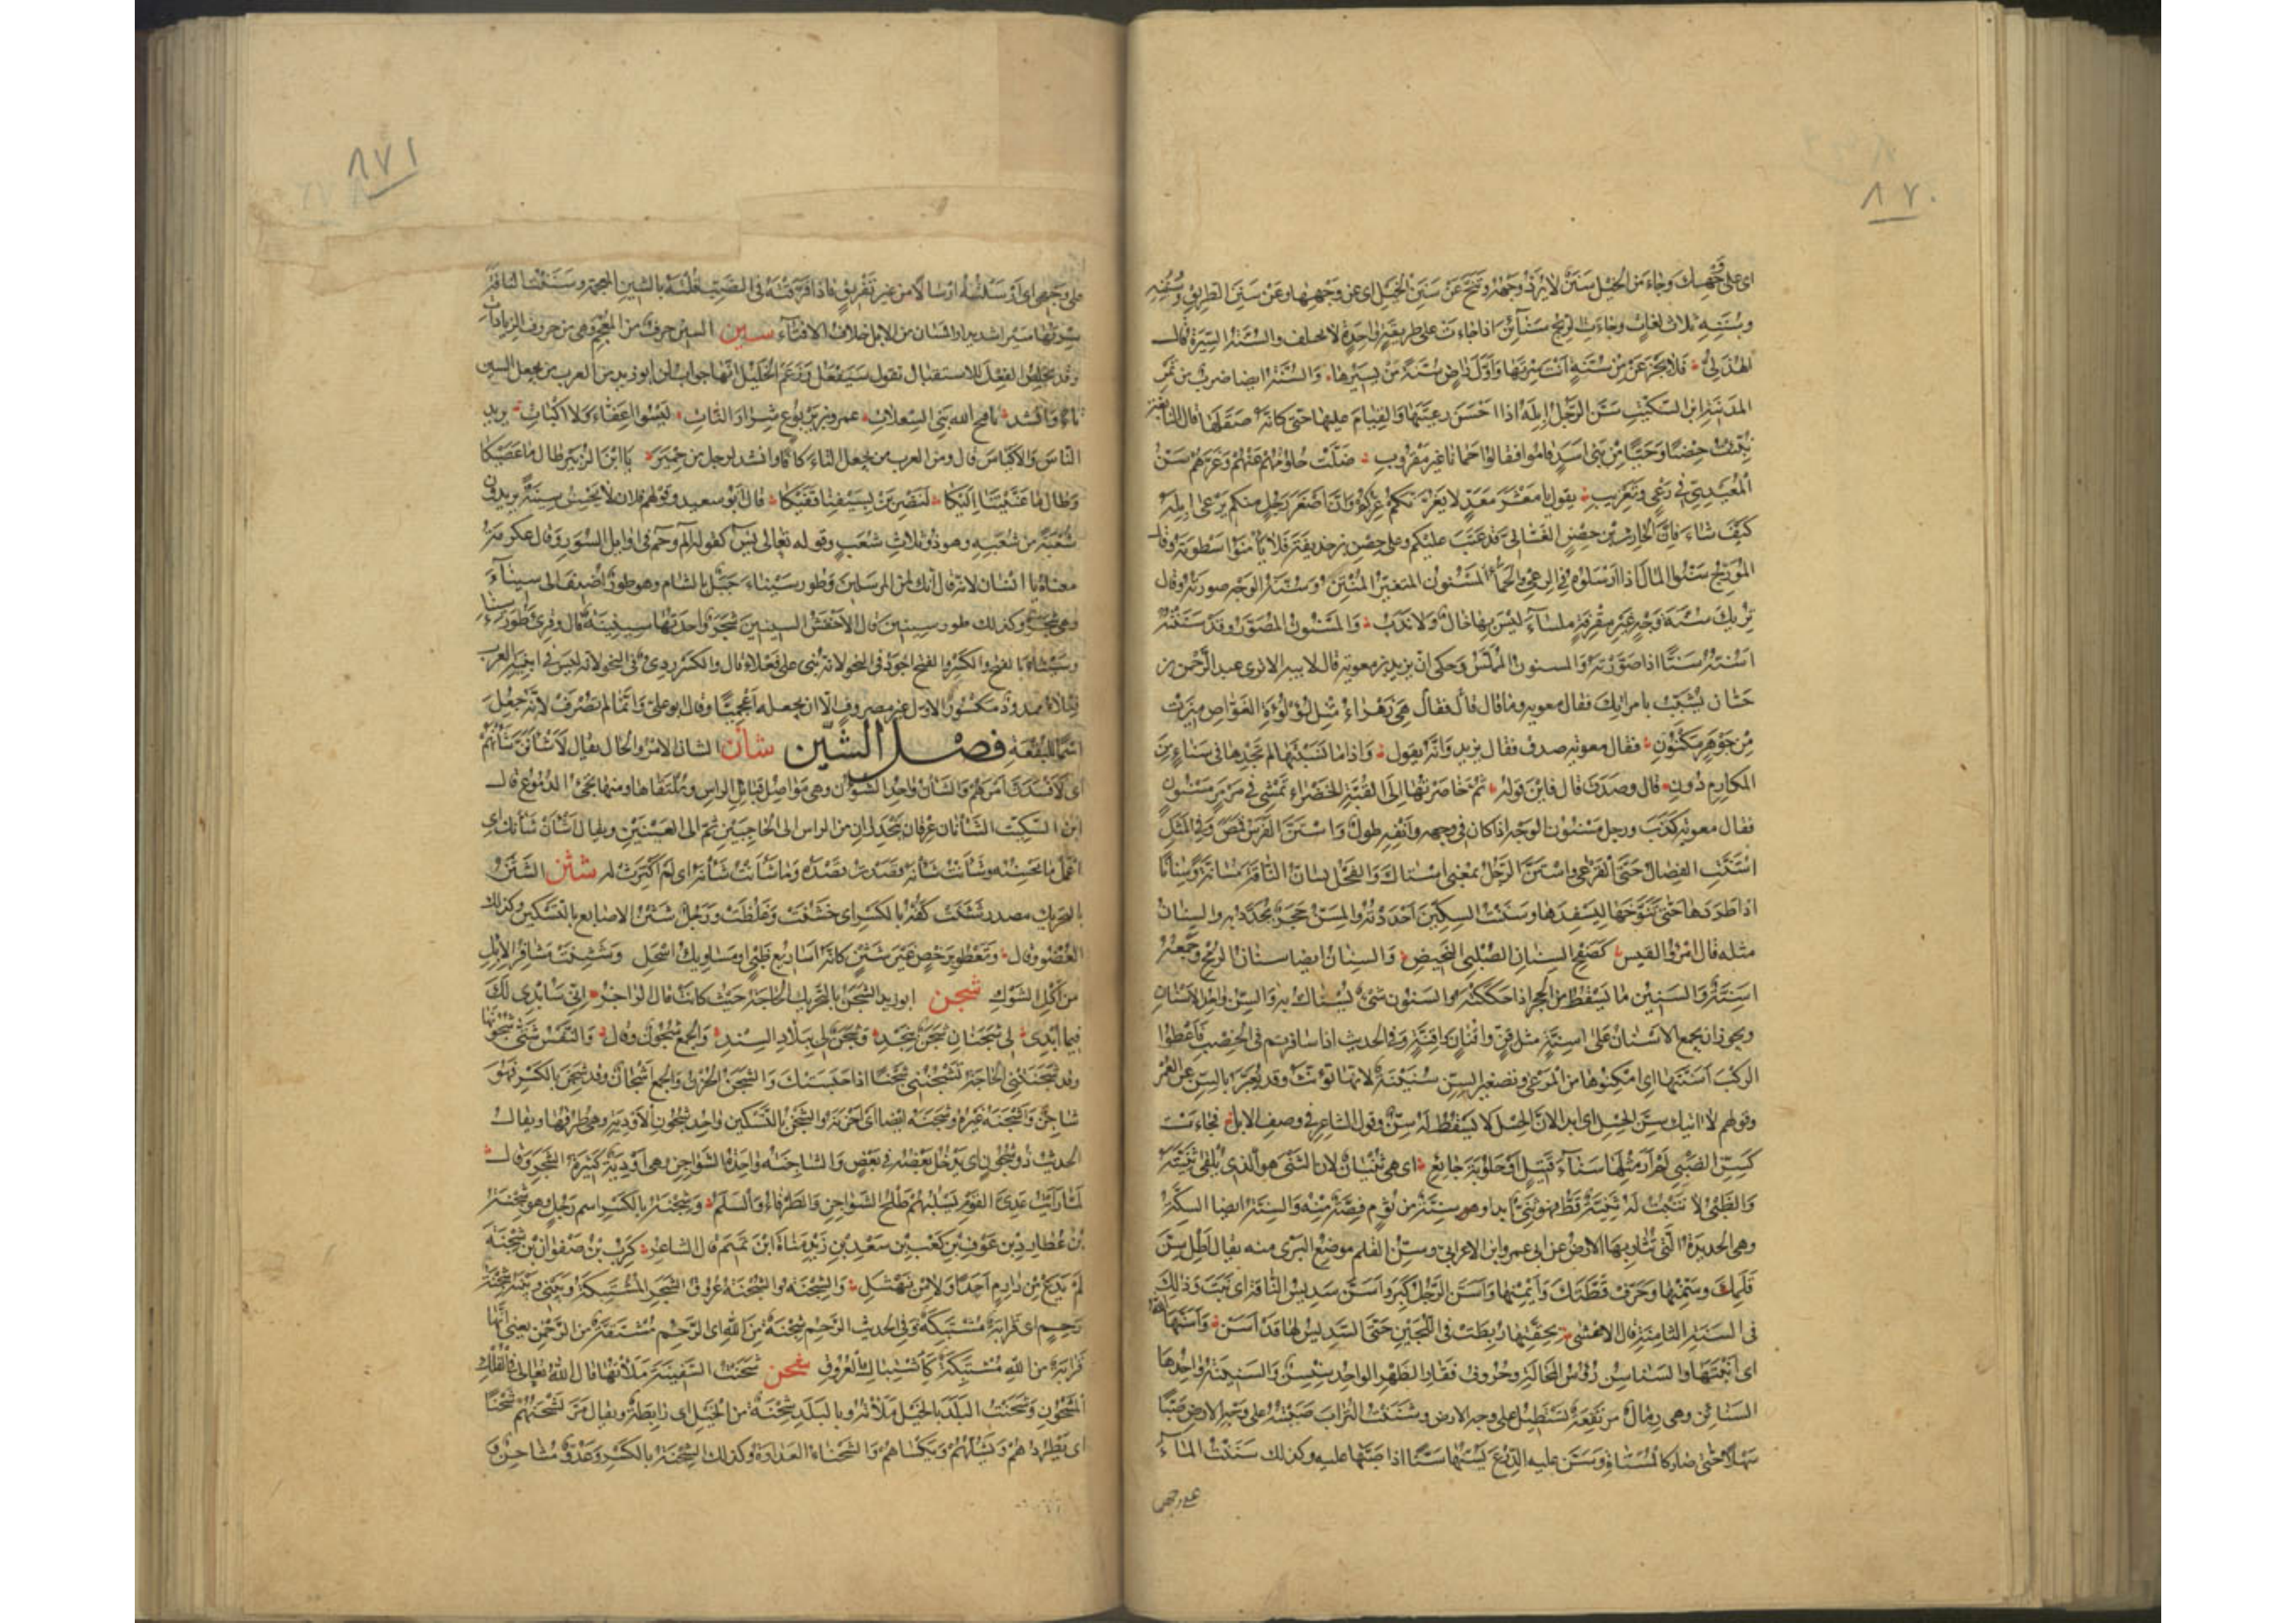 ٨٧٠
اى على وجهك وجاء من الخيل سنن لا يرد وجهه وتنح عن سنن الخيل اى عن وجهها وعن سنن الطريق وسننه
وسننه ثلاث لغات وجاءت الريح سنائن اذا جاءت على طريقة واحدة لا تختلف والسنة السيرة قال
الهذلى فلا تجزعن من سنة انت سرتها واول راض سنة من يسيرها والسنة ايضا ضرب من تمر
المدينة ابن السكيت سن الرجل ابله اذا احسن رعيتها والقيام عليها حتى كانه صقلها قال النابغة
نبئت حصنا وحيا من بنى اسد قاموا فقالوا حمانا غير مقروب ضلت حلومهم عنهم وغرهم سن
المعيدى فى رعى وتعزيب يقول يا معشر معد لا يغرنكم عزكم وان اصغر رجل منكم يرعى ابله
كيف شاء فان الحارث بن حصن الغسانى قد عتب عليكم وعلى حصن بن حذيفة فلا تامنوا سطوته وقال
المؤرج سنوا المال اذا ارسلوه فى الرعى والحمأ المسنون المتغير المنتن وسنة الوجه صورته وقال
تريك سنة وجه غير مقرفة ملساء ليس بها خال ولا ندب والمسنون المصور وقد سننته
اسنه سنا اذا صورته والمسنون المملس وحكى ان يزيد بن معوية قال لابيه الا ترى عبد الرحمن بن
حسان يشبب بابنتك فقال معوية وما قال قال فقال هى زهراء مثل لؤلؤة الغواص ميزت
من جوهر مكنون فقال معوية صدق فقال يزيد وانه يقول واذا ما نسبتها لم تجدها فى سناء من
المكارم دون قال وصدق قال فاين قوله ثم خاصرتها الى القبة الخضراء تمشى فى مرمر مسنون
فقال معوية كذب ورجل مسنون الوجه اذا كان فى وجهه وانفه طول واستن الفرس قمص وفى المثل
استنت الفصال حتى القرعى واستن الرجل بمعنى استاك والفحل يسان الناقة مسانة وسنانا
اذا طردها حتى تنوخها ليسفدها وسننت السكين احددته والمسن حجر يحدد به والسنان
مثله قال امرؤ القيس كصفح السنان الصلبى النحيض والسنان ايضا سنان الرمح وجمعه
اسنة والسنين ما يسقط من الحجر اذا حككته والسنون شئ يستاك به والسن واحد الاسنان
ويجوز ان يجمع الاسنان على اسنة مثل قن واقنان واقنة وفى الحديث اذا سافرتم فى الخصب فاعطوا
الركب اسنتها اى امكنوها من المرعى وتصغير السن سنينة لانها تؤنث وقد يعبر بالسن عن العمر
وقولهم لا اتيك سن الحسل اى ابدا لان الحسل لا يسقط له سن وقول الشاعر فى وصف الابل فجاءت
كسن الظبى لم ار مثلها سناء قتيل او حلوبة جائع اى هى ثنيان لان الثنى هو الذى يلقى ثنيته
والظبى لا تنبت له ثنية قط فهو ثنى ابدا وهو سنة من ثوم فصة منه والسنة ايضا السكة
وهى الحديدة التى تثار بها الارض عن ابى عمرو وابن الاعرابى وسن القلم موضع البرى منه يقال اطل سن
قلمك وسمنها وحرف قطتك وايمنها واسن الرجل كبر واسن سديس الناقة اى نبت وذلك
فى السنة الثامنة قال الاعشى بحقتها ربطت فى اللجين حتى السديس لها قد اسن واسنها الله
اى انبتها والسناسن رؤس المحالة وحروف فقار الظهر الواحد سنسن والسنينة واحدها
السنائن وهى رمال مرتفعة تستطيل على وجه الارض وسننت التراب صببته على وجه الارض صبا
سهلا حتى صار كالمسناة وسن عليه الدرع يسنها سنا اذا صبها عليه وكذلك سننت الماء
على وجهى
٨٧١
على وجهى اى ارسلته ارسالا من غير تفريق فاذا فرقته فى الصب قلته بالشين المعجمة وسننت الناقة
سرتها سيرا شديدا والسان من الابل خلاف الافتاء سين السين حرف من المعجم وهى من حروف الزيادات
وقد يخلص الفعل للاستقبال تقول سيفعل وزعم الخليل انها جواب لن ابو زيد من العرب من يجعل السين
تاء وانشد يا قبح الله بنى السعلات عمرو بن يربوع شرار النات ليسوا اعفاء ولا اكيات يريد
الناس والاكياس قال ومن العرب من يجعل التاء كافا وانشد لرجل من حمير يا ابن الزبير طال ما عصيكا
وطال ما عنيتنا اليكا لنضربن بسيفنا قفيكا قال ابو سعيد وقولهم فلان لا يحسن سينه يريدون
شعبة من شعبه وهو ذو ثلاث شعب وقوله تعالى يس كقوله الم وحم فى اوائل السور وقال عكرمة
معناه يا انسان لانه قال انك لمن المرسلين وطور سيناء جبل بالشام وهو طور اضيف الى سيناء
وهى شجر وكذلك طور سينين قال الاخفش السينين شجر واحدتها سينينة قال وقرئ طور سيناء
وسيناء بالفتح والكسر والفتح اجود فى النحو لانه بنى على فعلاء قال والكسر ردئ فى النحو لانه ليس فى ابنية العرب
فعلاء ممدود مكسور الاول غير مصروف الا ان يجعله اعجميا وقال ابو على وانما لم تصرف لانه جعل
اسما للبقعة فصل الشين شان الشان الامر والحال يقال لاشانن شانهم
اى لافسدن امرهم والشان واحد الشؤن وهى مواصل قبائل الراس وملتقاها ومنها تجئ الدموع قال
ابن السكيت الشانان عرقان ينحدران من الراس الى الحاجبين ثم الى العينين ويقال اشان شانك اى
اعمل ما تحسنه وشانت شانه قصدت قصده وما شانت شانه اى لم اكترث له شثن الشثن
بالتحريك مصدر شثنت كفه بالكسر اى خشنت وغلظت ورجل شثن الاصابع بالتسكين وكذلك
العضو وقال وتعطو برخص غير شثن كانه اساريع ظبى او مساويك اسحل وشثنت مشافر الابل
من اكل الشوك شجن ابو زيد الشجن بالتحريك الحاجة حيث كانت قال الراجز انى سابدى لك
فيما ابدى لى شجنان شجن بنجد وشجن لى ببلاد السند والجمع شجون وقال والنفس شتى شجونها
وقد شجنتنى الحاجة تشجننى شجنا اذا حبستك والشجن الحزن والجمع اشجان وقد شجن بالكسر فهو
شاجن واشجنه غيره وشجنه ايضا اى احزنه والشجن بالتسكين واحد شجون الاودية وهى طرقها ويقال
الحديث ذو شجون اى يدخل بعضه فى بعض والشاجنة واحدة الشواجن وهى اودية كثيرة الشجر وقال
لما رايت عدى القوم يسلبهم طلح الشواجن والطرفاء والسلم وشجنة بالكسر اسم رجل وهو شجنة
بن عطارد بن عوف بن كعب بن سعد بن زيد مناة ابن تميم قال الشاعر كرب بن صفوان بن شجنة
لم يدع من دارم احدا ولا من نهشل والشجنة والشجنة عروق الشجر المشتبكة وبينى وبينه شجنة
رحم اى قرابة مشتبكة وفى الحديث الرحم شجنة من الله اى الرحم مشتقة من الرحمن يعنى انها
قرابة من الله مشتبكة كاشتباك العروق شحن شحنت السفينة ملأتها قال الله تعالى فى الفلك
المشحون وشحنت البلد بالخيل ملأته وبالبلد شحنة من الخيل اى رابطة ويقال مر يشحنهم شحنا
اى يطردهم ويشلهم ويكساهم والشحناء العداوة وكذلك الشحنة بالكسر وعدو مشاحن و